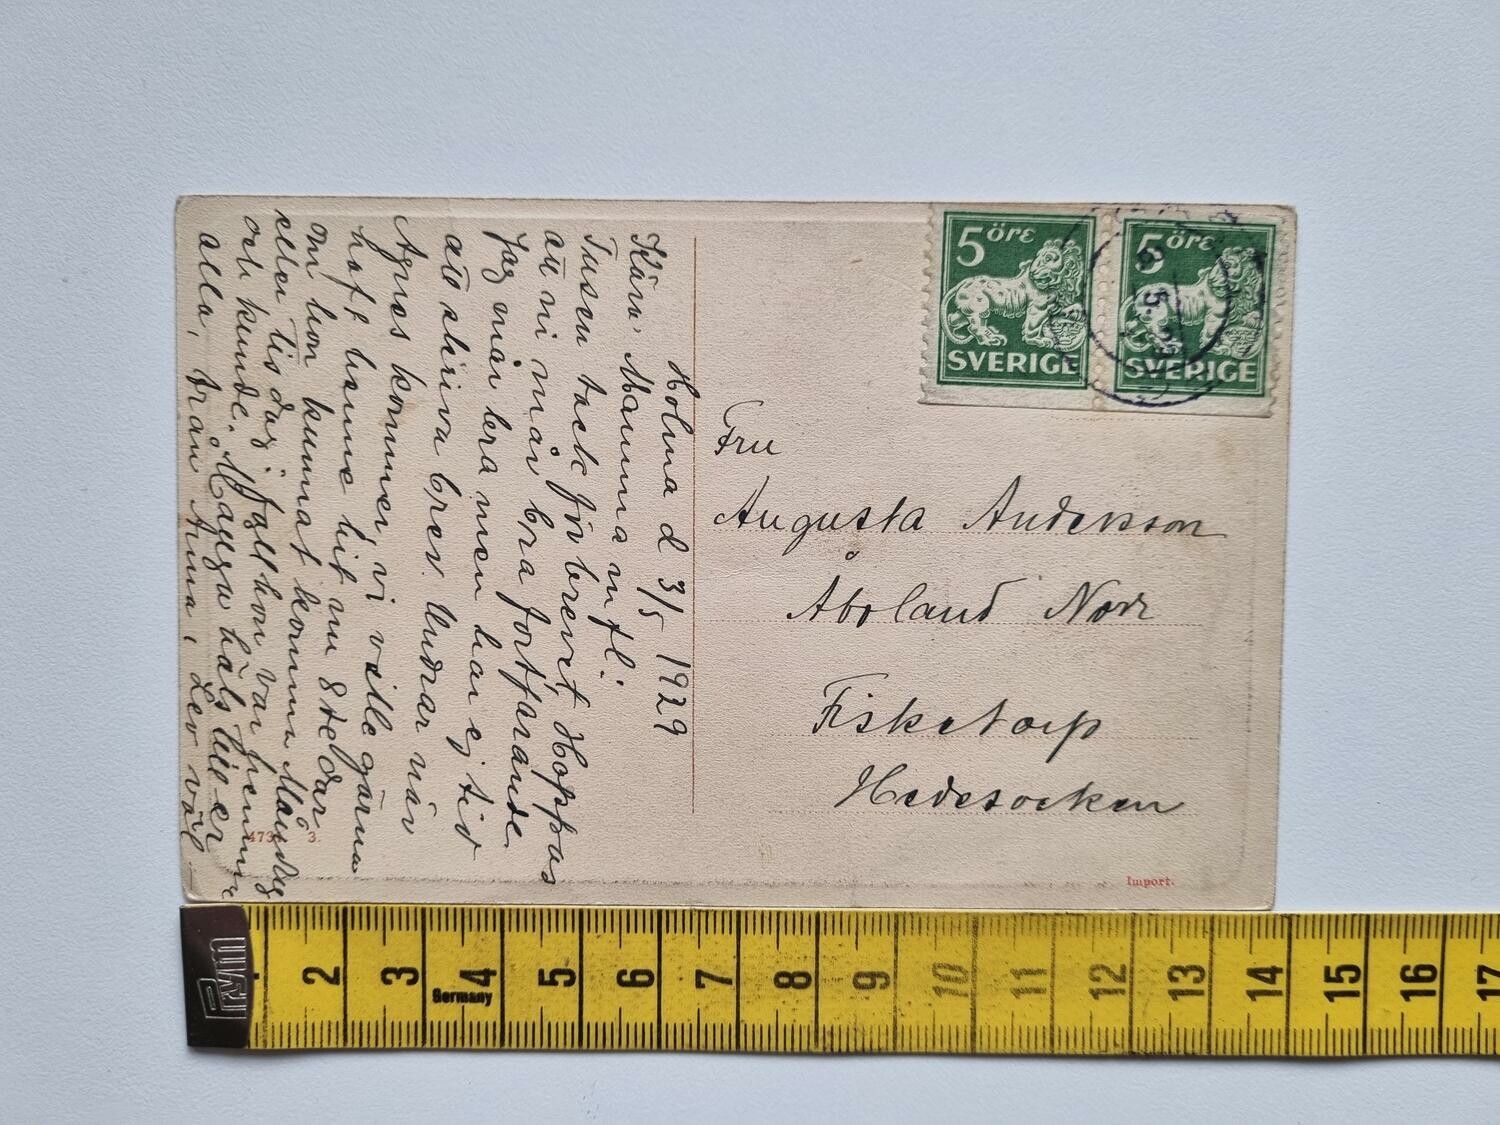 Holma d 3/5 1929
Kära Mamma m fl.
Tusen tack för brevet, Hoppas
att ni mår bra fortfarande
Jag mår bra men har ej tid
att skriva brev. Undrar när
Agnes kommer, vi ville gärna
haft henne hit nu 8 de dar
om hon kunnat komma Måndag
eller Tisdag. Ifall hon var hemma
och kunde. Många häls till er
alla, från Anna, Lev väl
473 3.
5 öre
SVERIGE
5 öre
SVERIGE
5. 29
Fru
Augusta Andersson
Åboland Norr
Fisketorp
Hedesocken
Import.
prym
1 2 3 4 5 6 7 8 9 10 11 12 13 14 15 16 17
Germany